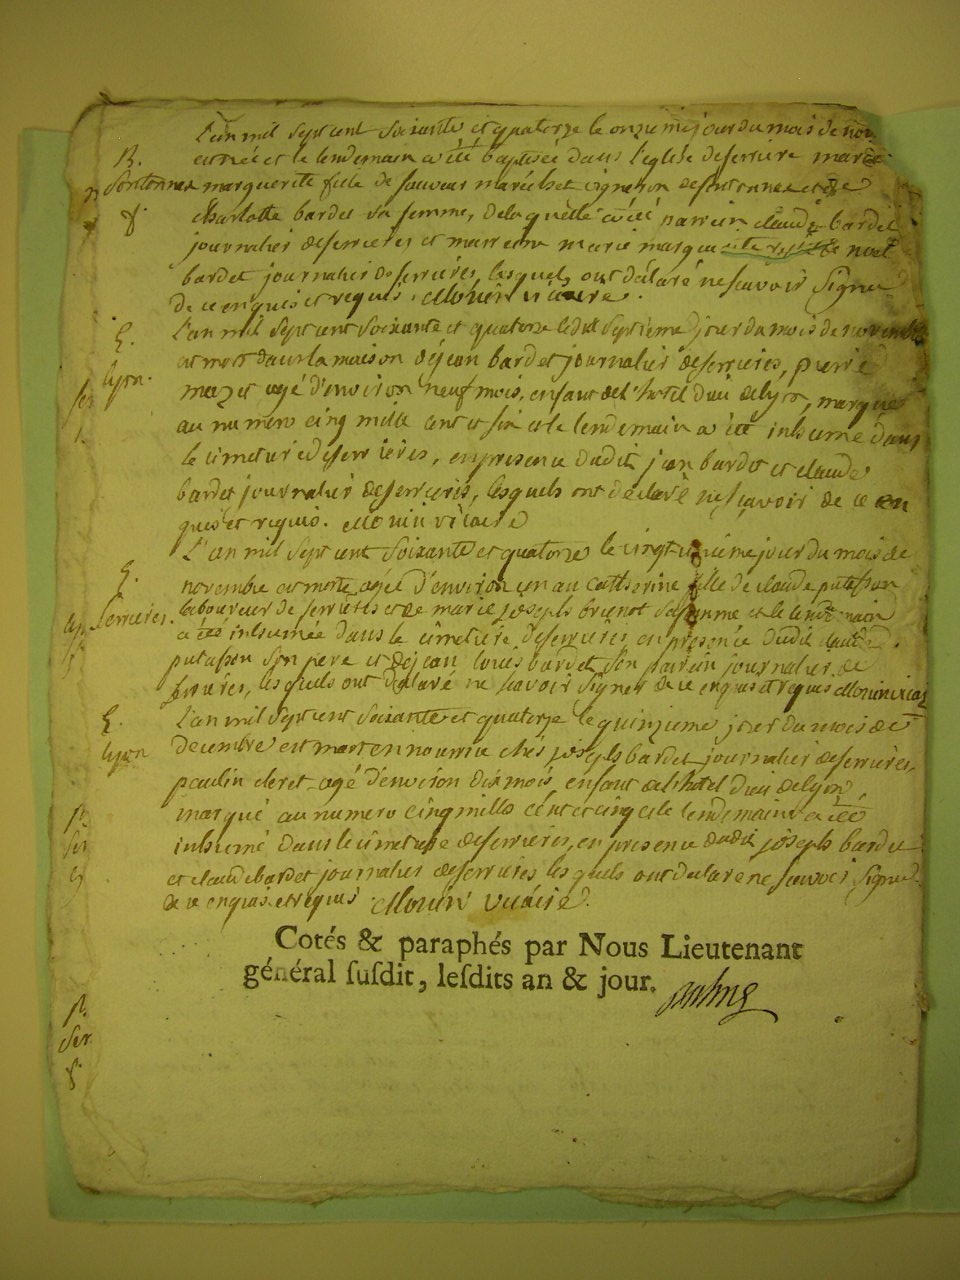 L'an mil sept cent soixante et quatorze le onzieme jour du mois de nov.
est née et le lendemain a été baptisée dans l'eglise deserriere marie
marguerite fille de sauveur maréchet vigneron desantonnex et de
charlotte bardet sa femme, de laquelle a été parrein claude bardet
journalier deserrieres et marreine marie marguerite de noel
bardet journalier deserrieres, lesquels ont déclaré ne scavoir signer
de ce enquis et requis. Mouin vicaire.
L'an mil sept cent soixante et quatorze le dix septieme jour du mois de novembre
est mort dans la maison dejean bardet journalier deserrieres, pierre
mazet agé d'environ neuf mois, enfant de l'hotel dieu delyon, marqué
au numero cinq mille cent et six et le lendemain a été inhumé dans
le cimetiere deserrieres, en presence dudit jean bardet et claude
bardet journalier deserrieres, lesquels ont déclaré ne scavoir de ce en
quis et requis. Mouin vicaire
L'an mil sept cent soixante et quatorze le vingt jour du mois de
novembre est morte agée d'environ un an catherine fille de claude putasson
laboureur de serrieres et de marie joseph brenot sa femme et le lendemain
a été inhumée dans le cimetiere deserrieres en presence dudit claude
putasson son pere et dejean louis bardet son parein journalier de
serrieres, lesquels ont déclaré ne scavoir signer de ce enquis et requis Mouin vicai
L'an mil sept cent soixante et quatorze le quinzieme jour du mois de
decembre est mort en nourrice chés joseph bardet journalier deserrieres,
paulin cleret agé d'environ dix mois, enfant de l'hotel dieu delyon,
marqué au numero cinq mille cent et cinq et le lendemain a été
inhumé dans le cimetiere deserrieres, en presence dudit joseph bardet
et claude bardet journalier deserrieres lesquels ont declaré ne scavoir signer
de ce enquis et requis Mouin vicaire.
Cotés & paraphés par Nous Lieutenant
général ſuſdit, leſdits an & jour.
B.
E.
lyon.
E.
Serrieres.
E.
lyon
Ser
Ser